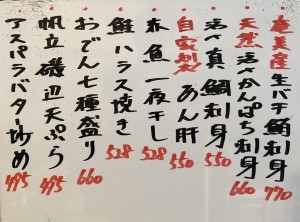 奄美産生バチ鮪刺身 770
天然活〆かんぱち刺身 660
活〆真鯛刺身 550
自家製あん肝 550
赤魚一夜干し 528
鮭ハラス焼き 528
おでん七種盛り 660
帆立磯辺天ぷら 495
アスパラバター炒め 495